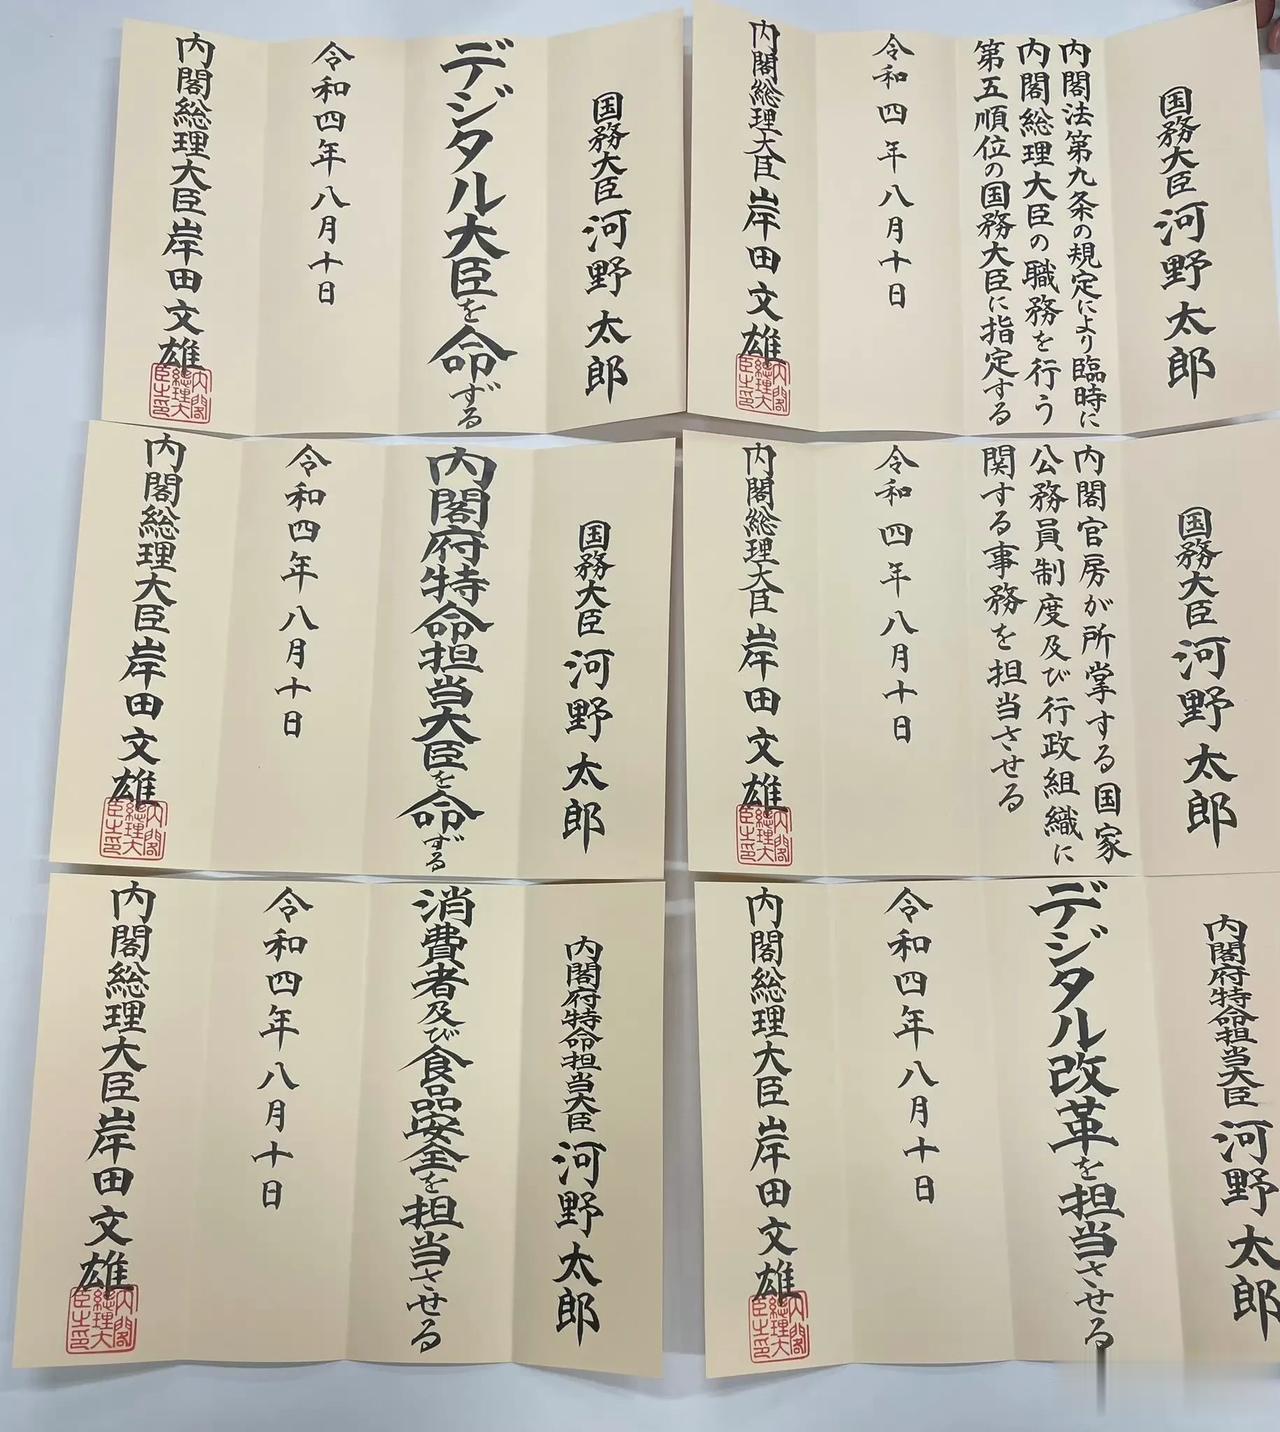 国務大臣 河野太郎
デジタル大臣を命ずる
令和四年八月十日
内閣総理大臣 岸田文雄
内閣総理大臣之印
国務大臣 河野太郎
内閣法第九条の規定により臨時に
内閣総理大臣の職務を行う
第五順位の国務大臣に指定する
令和四年八月十日
内閣総理大臣 岸田文雄
内閣総理大臣之印
国務大臣 河野太郎
内閣府特命担当大臣を命ずる
令和四年八月十日
内閣総理大臣 岸田文雄
内閣総理大臣之印
国務大臣 河野太郎
内閣官房が所掌する国家
公務員制度及び行政組織に
関する事務を担当させる
令和四年八月十日
内閣総理大臣 岸田文雄
内閣総理大臣之印
内閣府特命担当大臣 河野太郎
消費者及び食品安全を担当させる
令和四年八月十日
内閣総理大臣 岸田文雄
内閣総理大臣之印
内閣府特命担当大臣 河野太郎
デジタル改革を担当させる
令和四年八月十日
内閣総理大臣 岸田文雄
内閣総理大臣之印